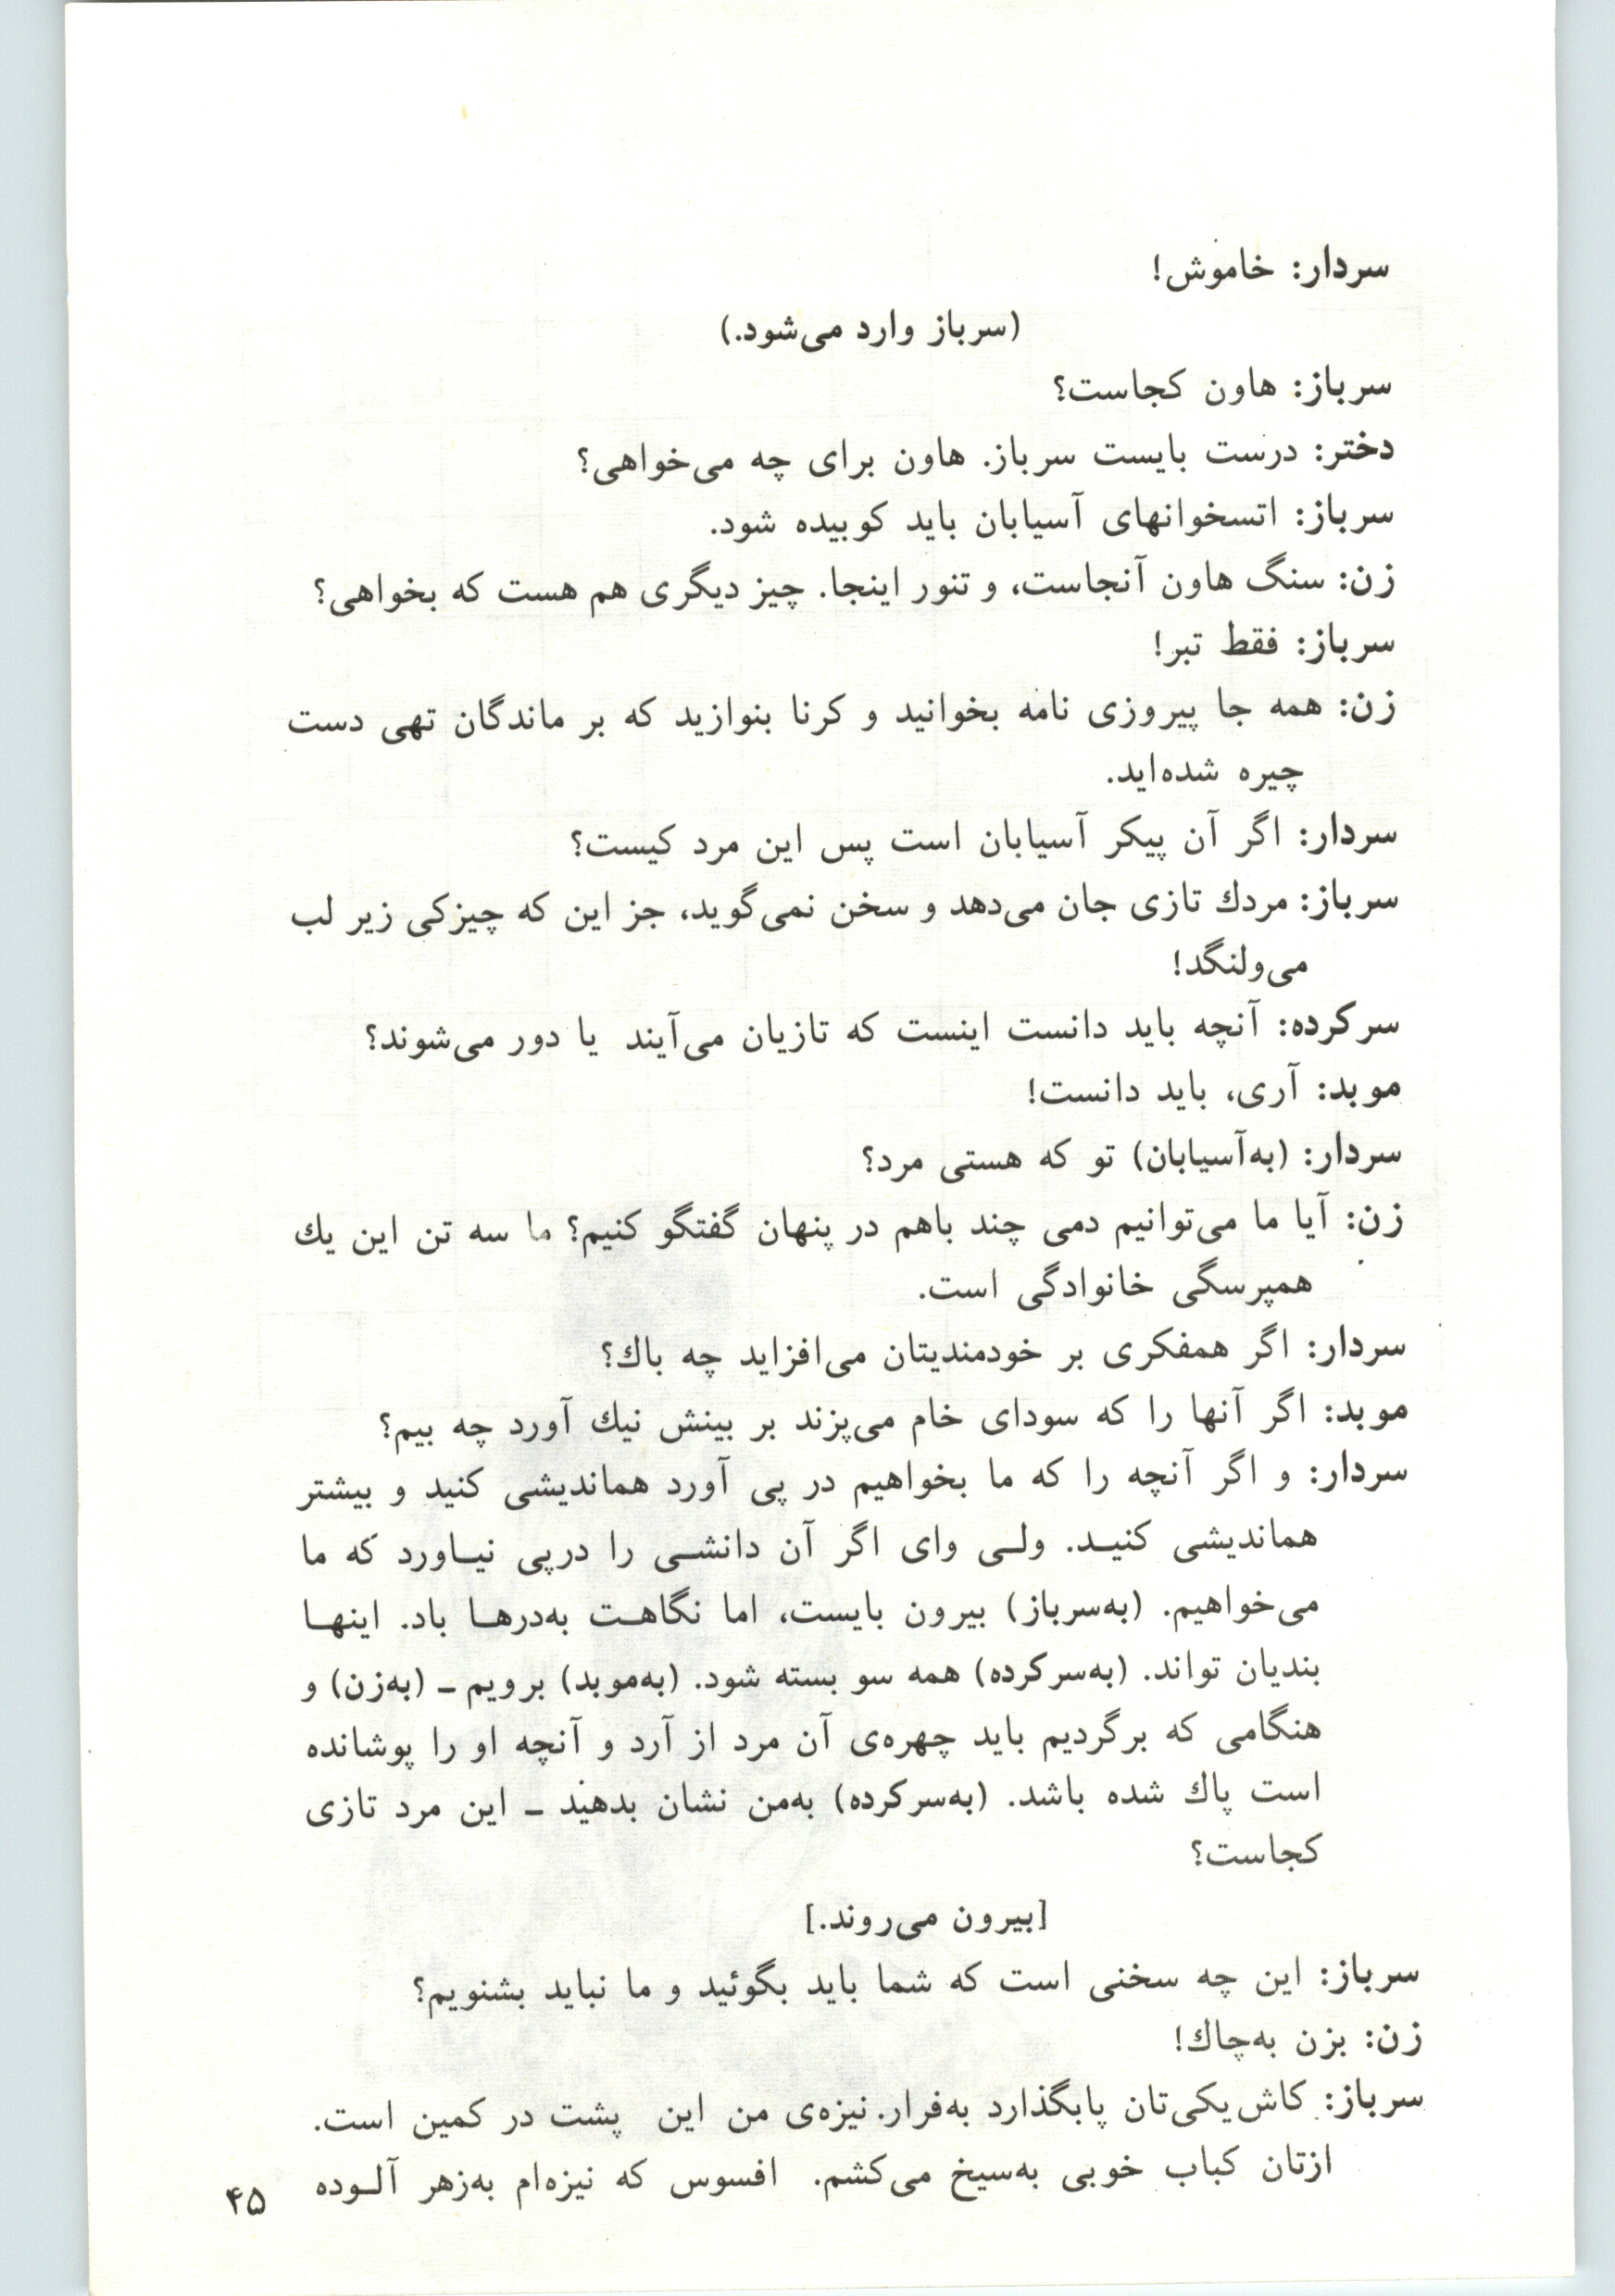 سردار: خاموش!
(سرباز وارد می‌شود.)
سرباز: هاون کجاست؟
دختر: درست بایست سرباز. هاون برای چه می‌خواهی؟
سرباز: اتسخوانهای آسیابان باید کوبیده شود.
زن: سنگ هاون آنجاست، و تنور اینجا. چیز دیگری هم هست که بخواهی؟
سرباز: فقط تبر!
زن: همه جا پیروزی نامه بخوانید و کرنا بنوازید که بر ماندگان تهی دست
چیره شده‌اید.
سردار: اگر آن پیکر آسیابان است پس این مرد کیست؟
سرباز: مردك تازی جان می‌دهد و سخن نمی‌گوید، جز این که چیزکی زیر لب
می‌ولنگد!
سرکرده: آنچه باید دانست اینست که تازیان می‌آیند یا دور می‌شوند؟
موبد: آری، باید دانست!
سردار: (به‌آسیابان) تو که هستی مرد؟
زن: آیا ما می‌توانیم دمی چند باهم در پنهان گفتگو کنیم؟ ما سه تن این یك
همپرسگی خانوادگی است.
سردار: اگر همفکری بر خودمندیتان می‌افزاید چه باك؟
موبد: اگر آنها را که سودای خام می‌پزند بر بینش نیك آورد چه بیم؟
سردار: و اگر آنچه را که ما بخواهیم در پی آورد هماندیشی کنید و بیشتر
هماندیشی کنیـد. ولـی وای اگر آن دانشـی را درپی نیـاورد که ما
می‌خواهیم. (به‌سرباز) بیرون بایست، اما نگاهـت به‌درهـا باد. اینهـا
بندیان تواند. (به‌سرکرده) همه سو بسته شود. (به‌موبد) برویم ـ (به‌زن) و
هنگامی که برگردیم باید چهره‌ی آن مرد از آرد و آنچه او را پوشانده
است پاك شده باشد. (به‌سرکرده) به‌من نشان بدهید ـ این مرد تازی
کجاست؟
[بیرون می‌روند.]
سرباز: این چه سخنی است که شما باید بگوئید و ما نباید بشنویم؟
زن: بزن به‌چاك!
سرباز: کاش یکی‌تان پابگذارد به‌فرار. نیزه‌ی من این پشت در کمین است.
ازتان کباب خوبی به‌سیخ می‌کشم. افسوس که نیزه‌ام به‌زهر آلـوده
۴۵